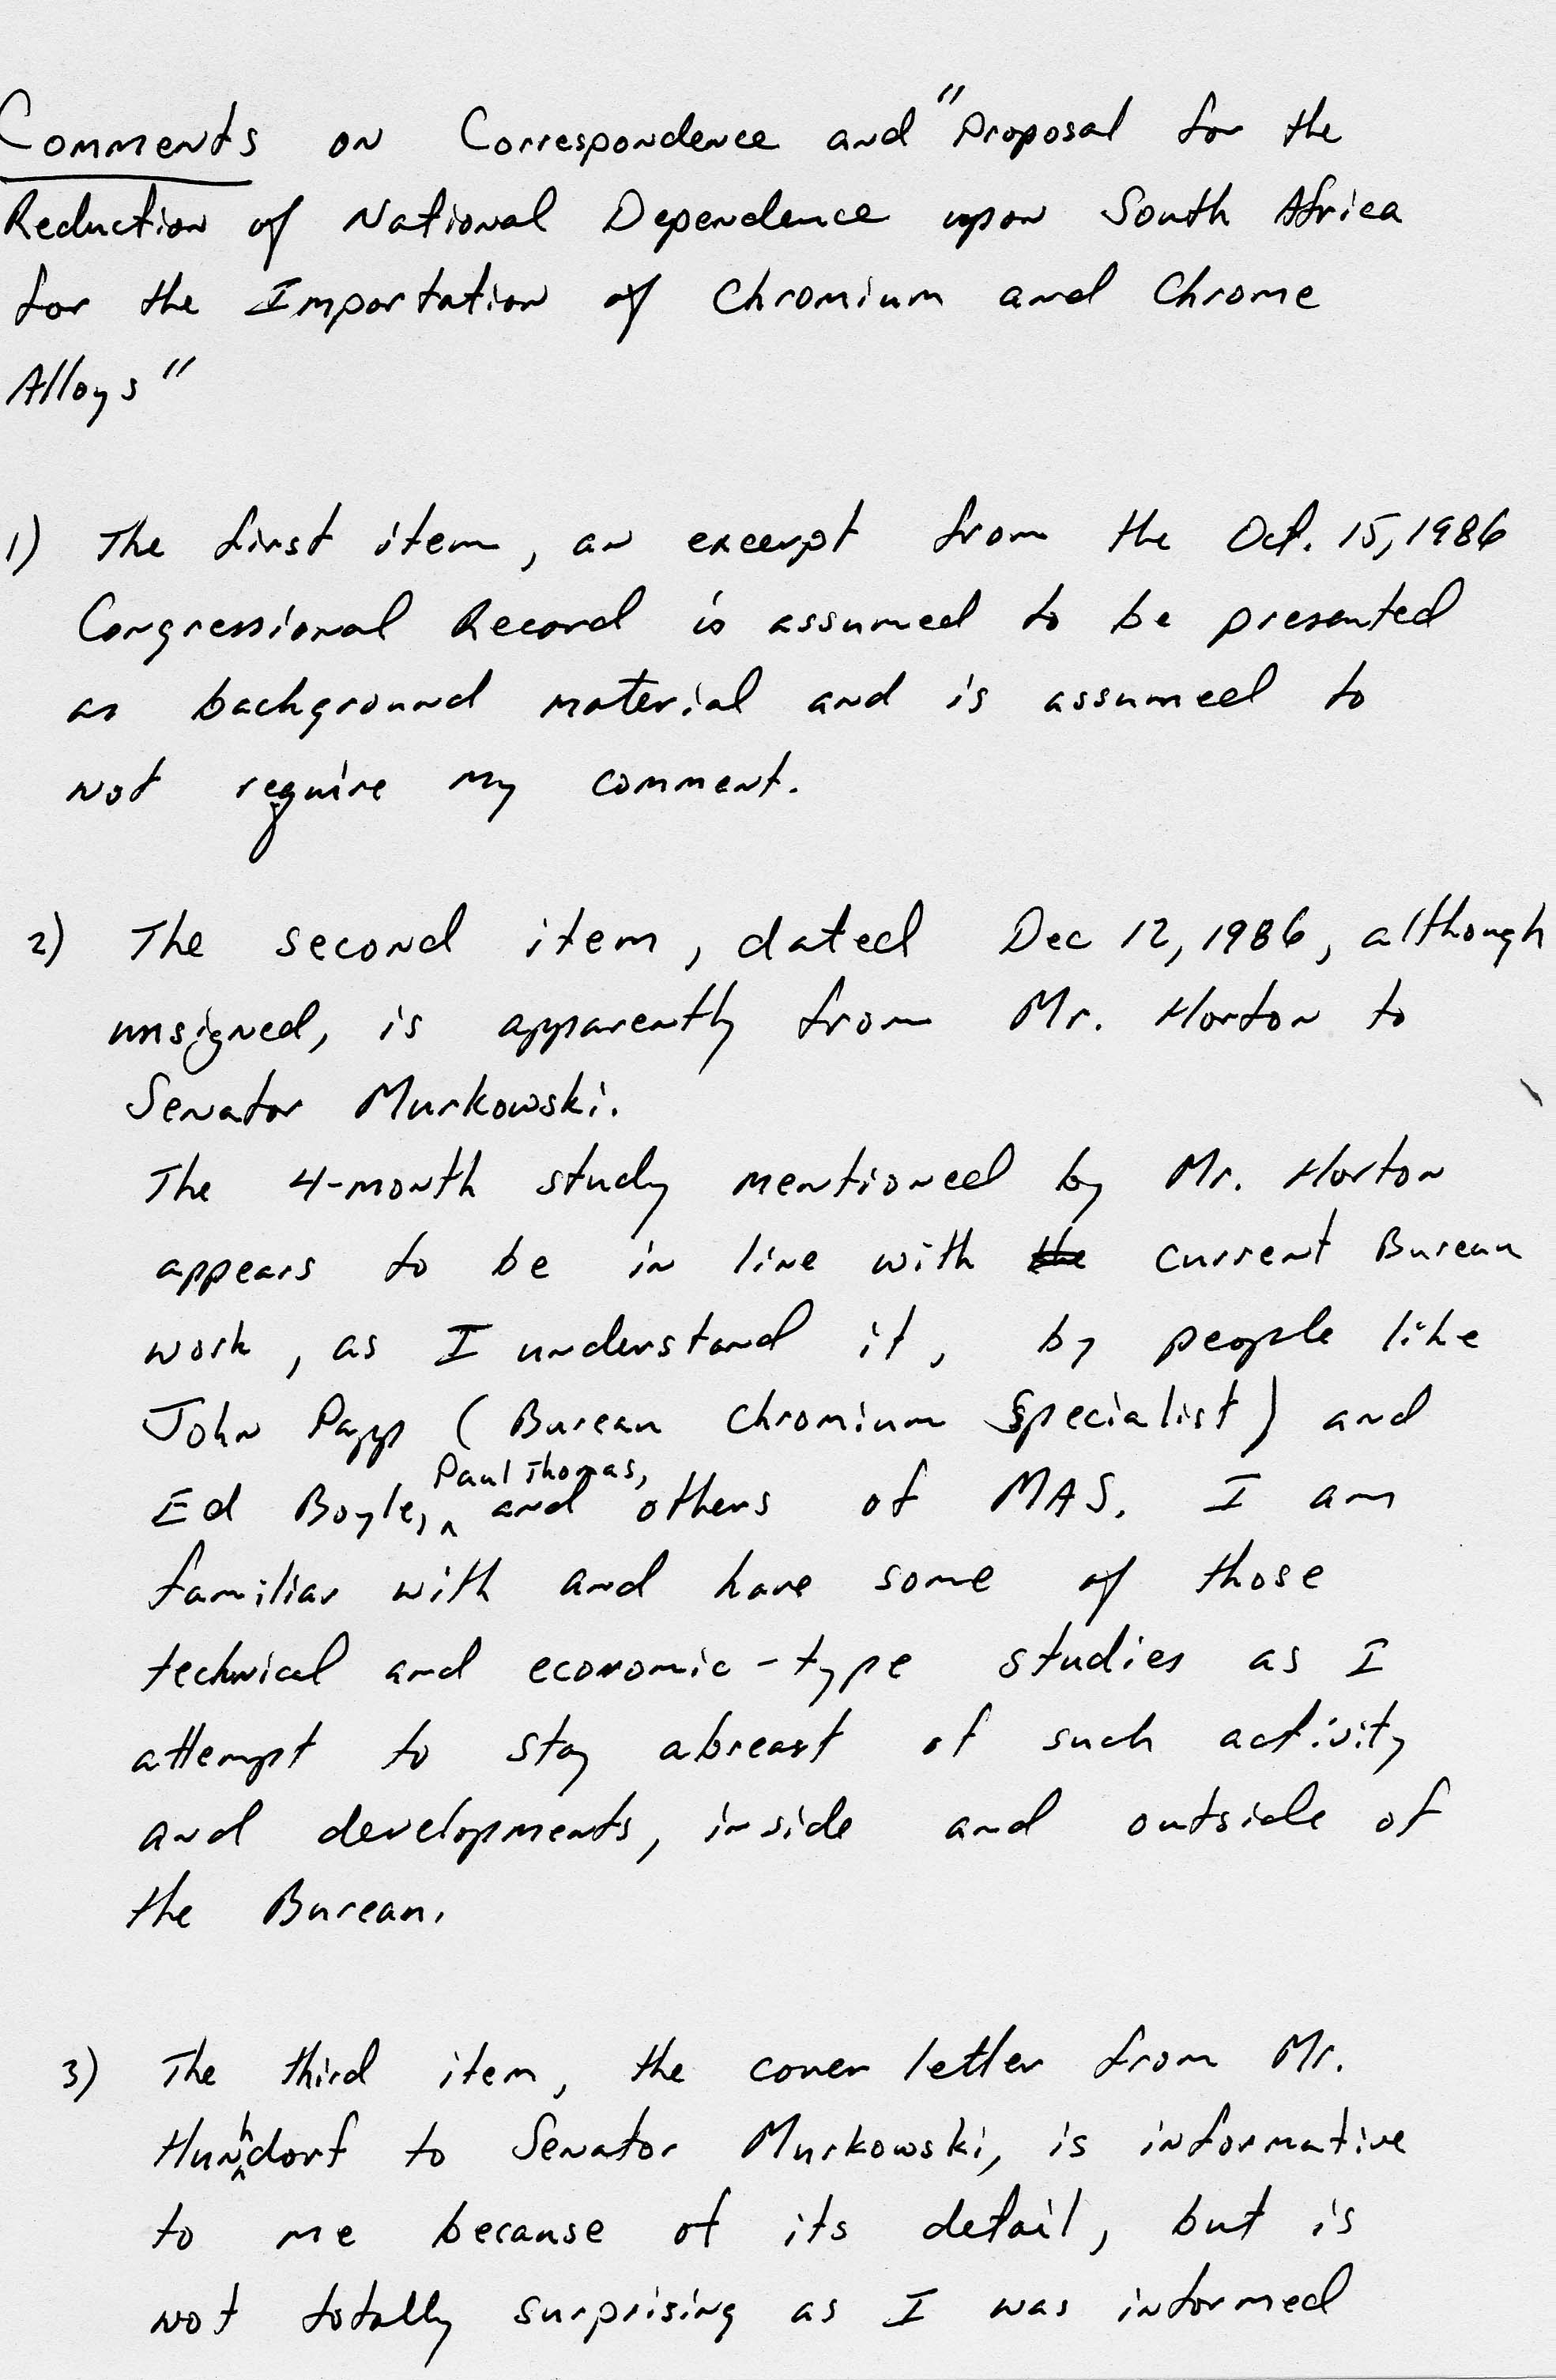 Comments on Correspondence and "Proposal for the
Reduction of National Dependence upon South Africa
for the Importation of Chromium and Chrome
Alloys"
1) The first item, an excerpt from the Oct. 15, 1986
Congressional Record is assumed to be presented
as background material and is assumed to
not require my comment.
2) The second item, dated Dec 12, 1986, although
unsigned, is apparently from Mr. Horton to
Senator Murkowski.
The 4-month study mentioned by Mr. Horton
appears to be in line with the current Bureau
work, as I understand it, by people like
John Papp (Bureau Chromium Specialist) and
Ed Boyle, Paul Thomas, and others of MAS. I am
familiar with and have some of those
technical and economic-type studies as I
attempt to stay abreast of such activity
and developments, inside and outside of
the Bureau.
3) The third item, the cover letter from Mr.
Hunhdorf to Senator Murkowski, is informative
to me because of its detail, but is
not totally surprising as I was informed